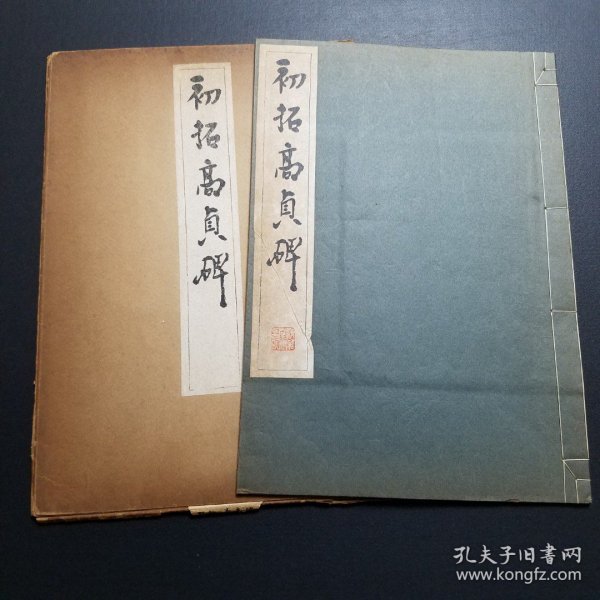 初拓高貞碑
初拓高貞碑
孔夫子旧書网
www.kongfz.com